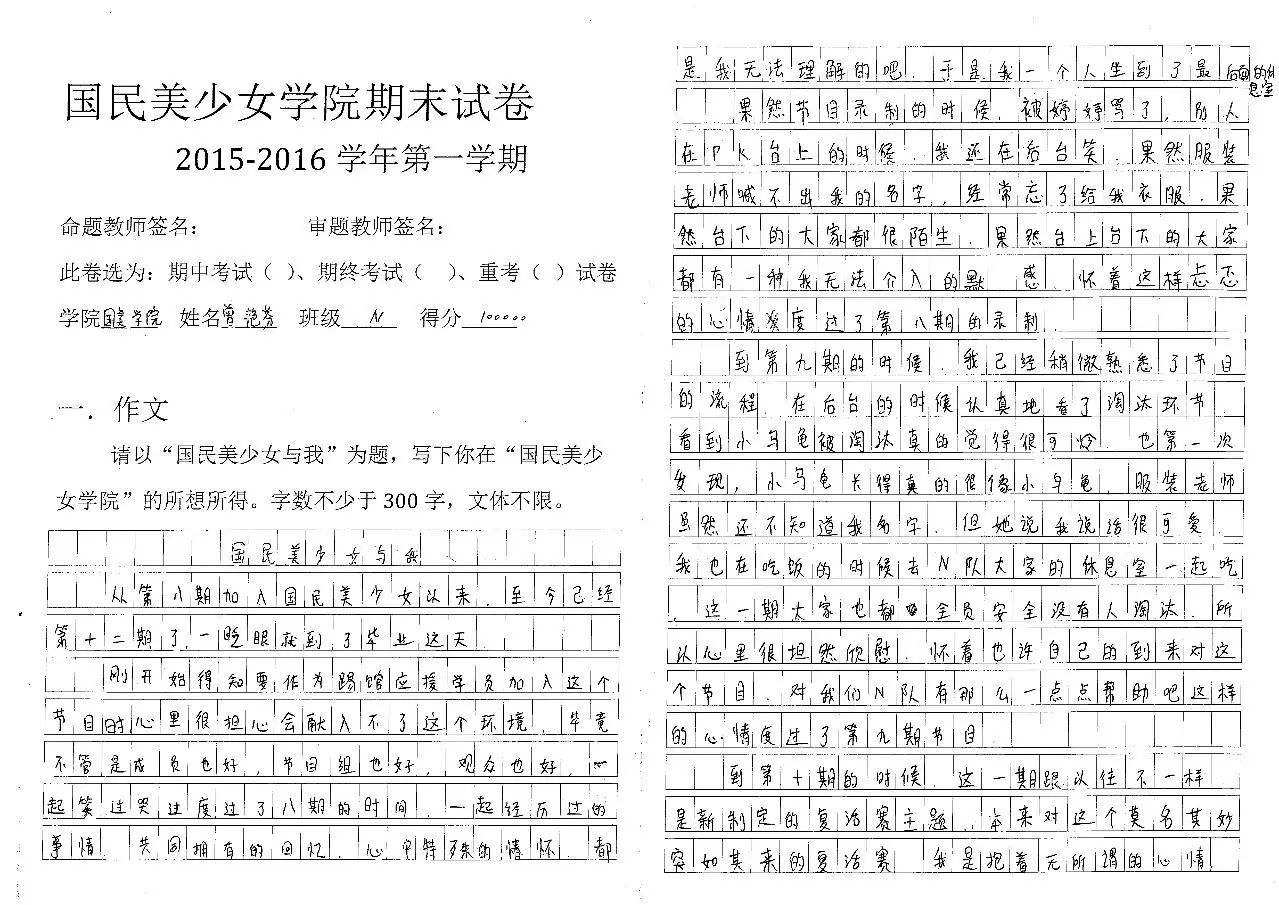 国民美少女学院期末试卷
2015-2016 学年第一学期
命题教师签名： 审题教师签名：
此卷选为：期中考试（ ）、期终考试（ ）、重考（ ）试卷
学院 国美学院 姓名 曾艳芬 班级 N 得分 100000
一．作文
请以“国民美少女与我”为题，写下你在“国民美少
女学院”的所想所得。字数不少于 300 字，文体不限。
国民美少女与我
从第八期加入国民美少女以来，至今已经
第十二期了，一眨眼就到了毕业这天
刚开始得知要作为踢馆应援学员加入这个
节目时心里很担心会融入不了这个环境，毕竟
不管是成员也好，节目组也好，观众也好，一
起笑过哭过度过了八期的时间 一起经历过的
事情，共同拥有的回忆，心中特殊的情怀，都
是我无法理解的吧，于是我一个人坐到了最后面的休息室
果然节目录制的时候，被婷婷骂了，别人
在PK台上的时候，我还在后台笑，果然服装
老师喊不出我的名字，经常忘了给我衣服，果
然台下的大家都很陌生，果然台上台下的大家
都有一种我无法介入的默 感，怀着这样忐忑
的心情度过了第八期的录制
到第九期的时候，我已经稍微熟悉了节目
的流程，在后台的时候认真地看了淘汰环节
看到小乌龟被淘汰真的觉得很可怜，也第一次
发现，小乌龟长得真的很像小乌龟，服装老师
虽然还不知道我名字，但她说我说话很可爱
我也在吃饭的时候去N队大家的休息室一起吃
，这一期大家也都 全员安全没有人淘汰，所
以心里很坦然欣慰，怀着也许自己的到来对这
个节目，对我们N队有那么一点点帮助吧这样
的心情度过了第九期节目
到第十期的时候，这一期跟以往不一样
是新制定的复活赛主题，本来对这个莫名其妙
突如其来的复活赛 我是抱着无所谓的心情